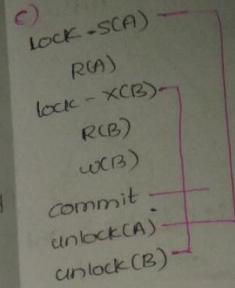 c)
lock-S(A)
R(A)
lock-X(B)
R(B)
W(B)
commit
unlock(A)
unlock(B)